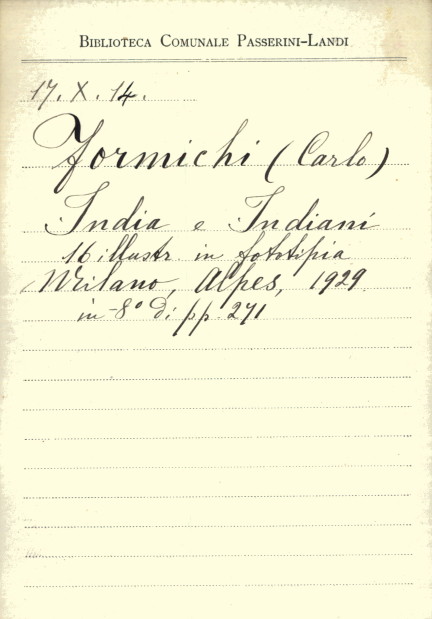 BIBLIOTECA COMUNALE PASSERINI-LANDI
17. X. 14.
Formichi (Carlo)
India e Indiani
16 illustr in fototipia
Milano, Alpes, 1929
in-8° di pp. 271